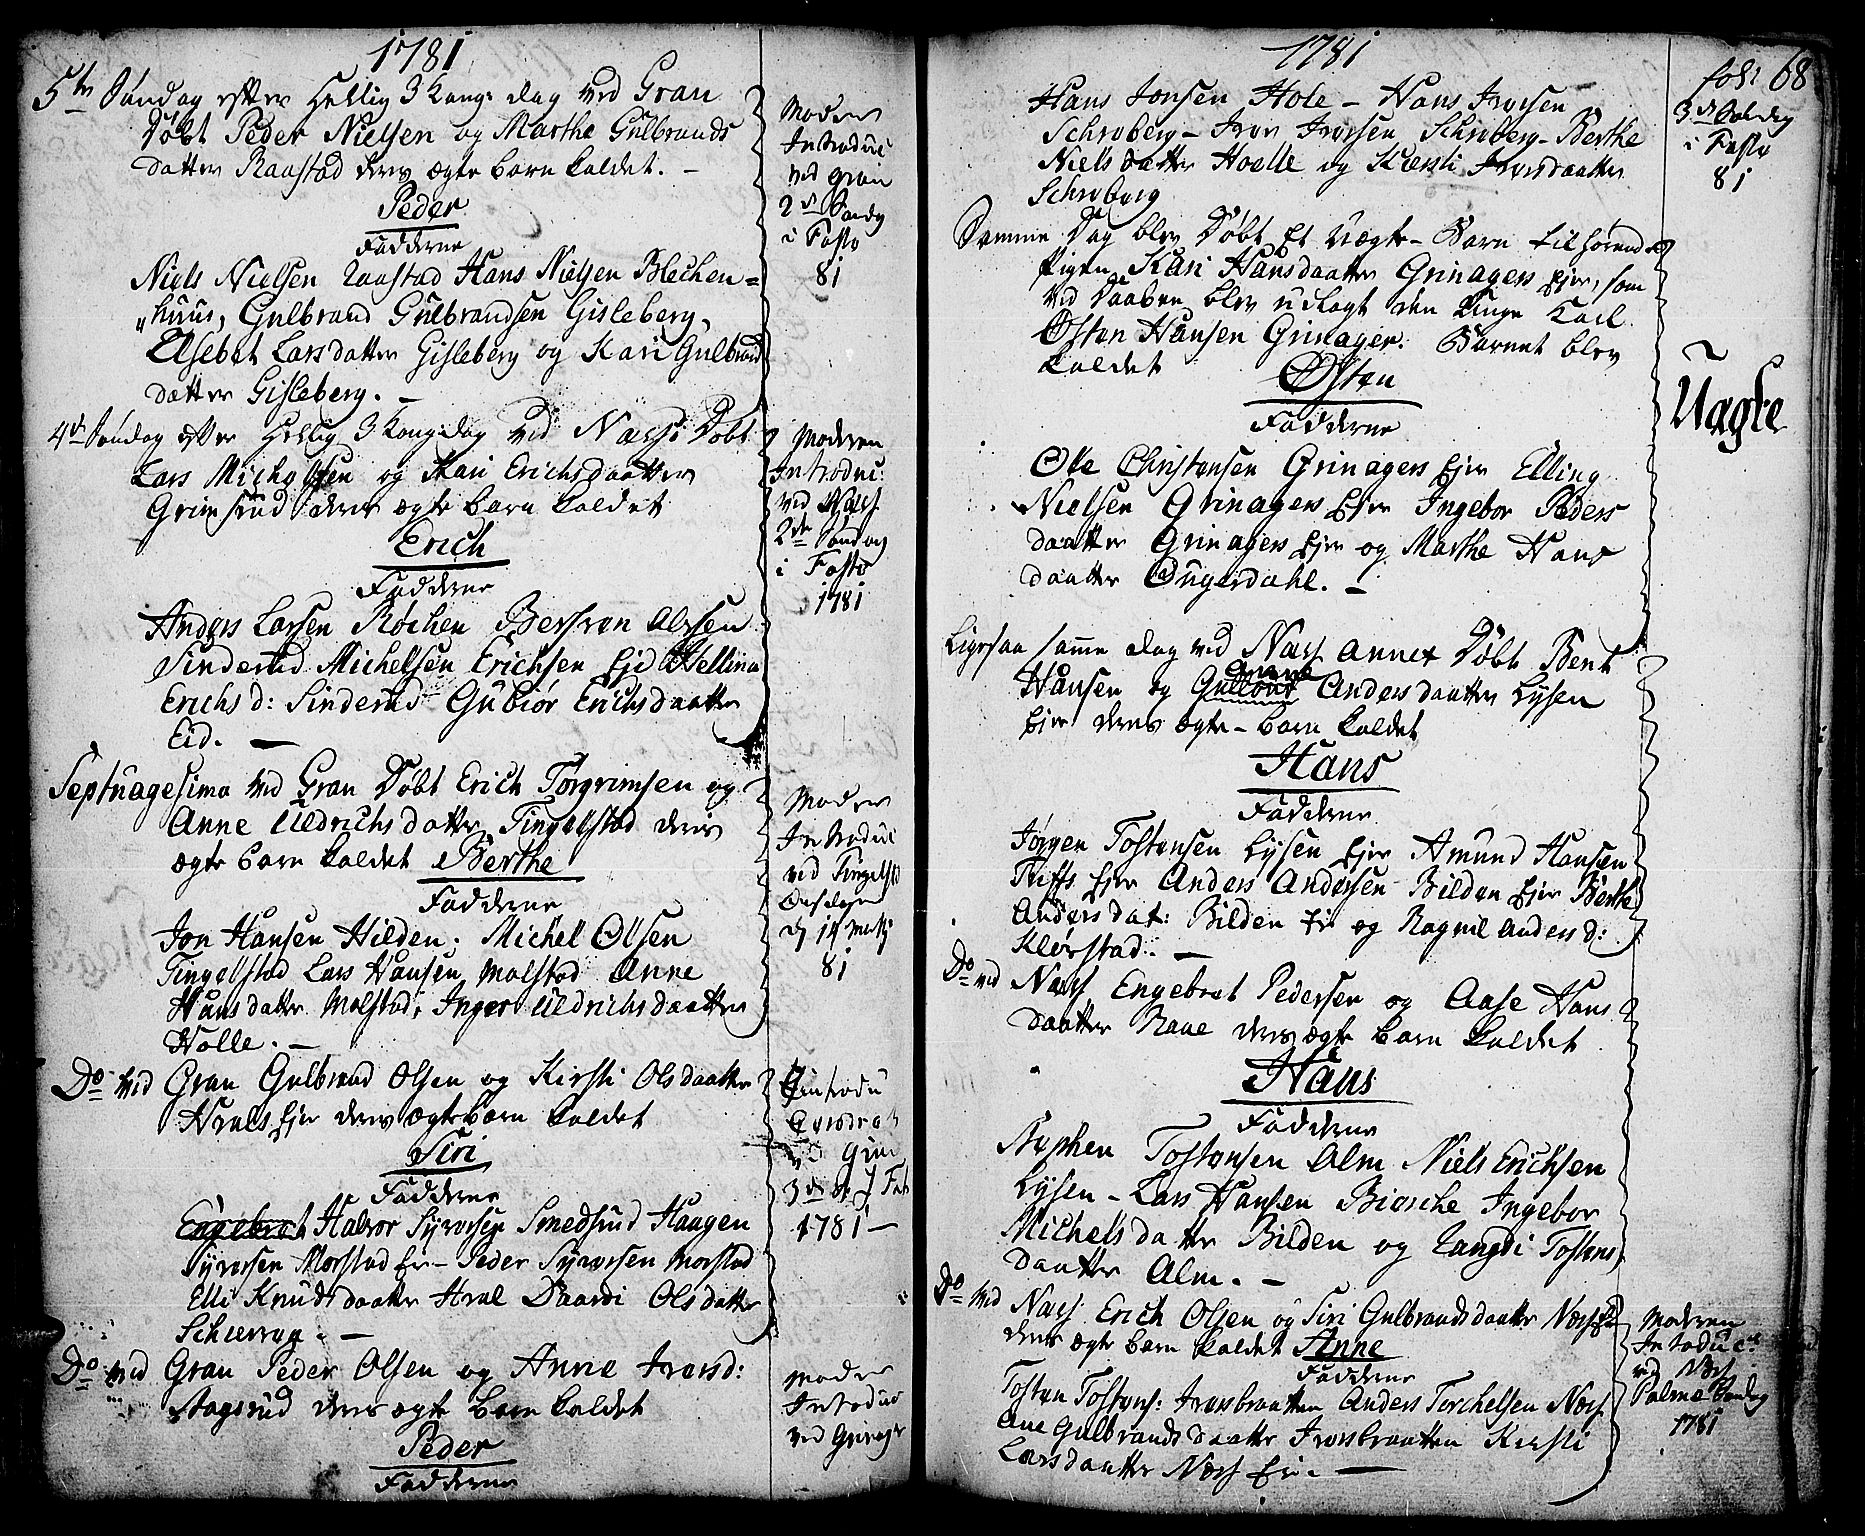 1781
5te Søndag efter Hellig 3 Kong: dag ved Gran
Døbt Peder Nielsen og Marthe Gulbrands
datter Raastad deres ægte barn kaldet. –
Peder
Fadderne
Niels Nielsen Raastad Hans Nielsen Blechen=
„huus, Gulbrand Gulbrandsen Gisleberg,
Elsebet Larsdatter Gisleberg og Kari Gulbrand
datter Gisleberg. –
Moderen
Introduc
ved Gran
2d Søndg
i Faste
81
4de Søndag efter Hellig 3 Kongdag ved Næss Døbt
Lars Michelsen og Kari Erichsdaatter
Grimsrud deres ægte barn kaldet
Erich
Fadderne
Anders Larsen Røchen Bersven Alfsen
Sinderud Michelsen Erichsen Eid Hellina
Erichsd: Sinderud Gubiør Erichsdaatter
Eid. –
Moderen
Introduc:
ved Næss
2de Søndag
i Faste
1781
Septuagesima ved Gran Døbt Erich Torgrimsen og
Anne Uldrichsdatter Tingelstad deres
ægte barn kaldet Berthe
Fadderne
Jon Hansen Hilden. Michel Olsen
Tingelstad Lars Hansen Molstad Anne
Hansdatter Molstad, Inger Uldrichsdaatter
Holle. –
Moder
Introduc
ved Tingelst
Onsdagen
d 14 Martj
81
Do ved Gran Gulbrand Olsen og Kirsti Olsdaatter
Hvals Ejer deres ægte barn kaldet
Siri
Fadderne
Engebret Halvor Syversen Smedsrud Haagen
Syversen Morstad Ei– Peder Syversen Morstad
Elli Knudsdaatter Hval Daardi Olsdatter
Schierven. –
Introdu
ved Gran
3d S. i Fast
1781 –
Do ved Gran Peder Olsen og Anne Iversd:
Stagsrud deres ægte barn kaldet
Peder
Fadderne
Moder
Introduc
ved Gran
1781
fol: 68
Hans Jonsen Hole – Hans Iversen
Schreberg – Iver Iversen Schreberg – Berthe
Niels datter Hoelle og Kiersti Iversdaatter
Schreberg
3d Søndag
i Faste
81
Samme Dag blev Døbt Et Uægte – Barn tilhørende
Pigen Kari Hansdaatter Grinagers Ejer, som
ved Daaben blev udlagt den Unge Karl
Østen Hansen Grinager. Barnet blev
kaldet Østen
Uægte
Fadderne
Ole Christensen Grinagers Ejer Elling
Nielsen Grinagers Ejer Ingebor Peders
daatter Grinagers Ejer og Marthe Hans
daatter Dugerdahl. –
Ligesaa samme dag ved Næss Annex Døbt Bent
Anne
Hansen og Gullond Andersdaatter Lysen
Ejer deres ægte – barn kaldet
Hans
Fadderne
Jørgen Tostensen Lysen Ejer Amund Hansen
Tuffs Ejer Anders Andersen Bilden Ejer Berthe
Anders dat: Bilden Ei og Ragnil Andersd:
Klørstad. –
Do ved Næss Engebret Pedersen og Aase Hans
daatter Raae deres ægte barn kaldet
Hans
Fadderne
Stephen Tostensen Alm Niels Erichsen
Lysen – Lars Hansen Biørche Ingebor
Michelsdatter Bilden og Rangdi Tostens
daatter Alm. –
Do ved Næss Erich Olsen og Siri Gulbrandsdaatter Næss Ei
deres ægte barn kaldet Anne
Fadderne
Tosten Tostens: Iversbraatten Anders Torchelsen Næss
Ane Gulbrandsdaatter Iversbraatten Kirsti
Larsdaatter Næss Ei. –
Moderen
Introduc
ved Næss
Palme Søndag
1781